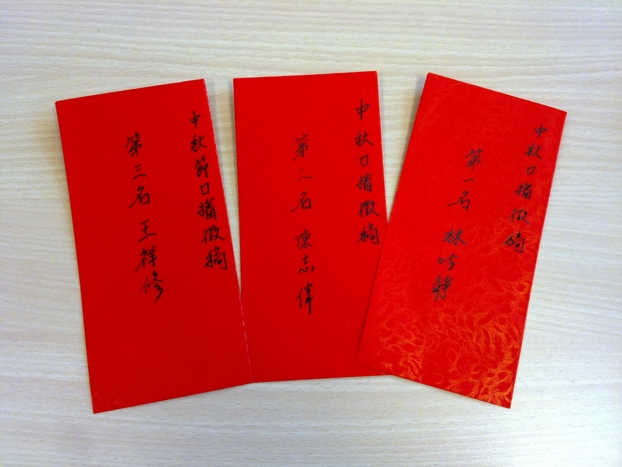 中秋口播徵稿
第一名 林吟靜
中秋口播徵稿
第二名 陳志偉
中秋節口播徵稿
第三名 王祥修